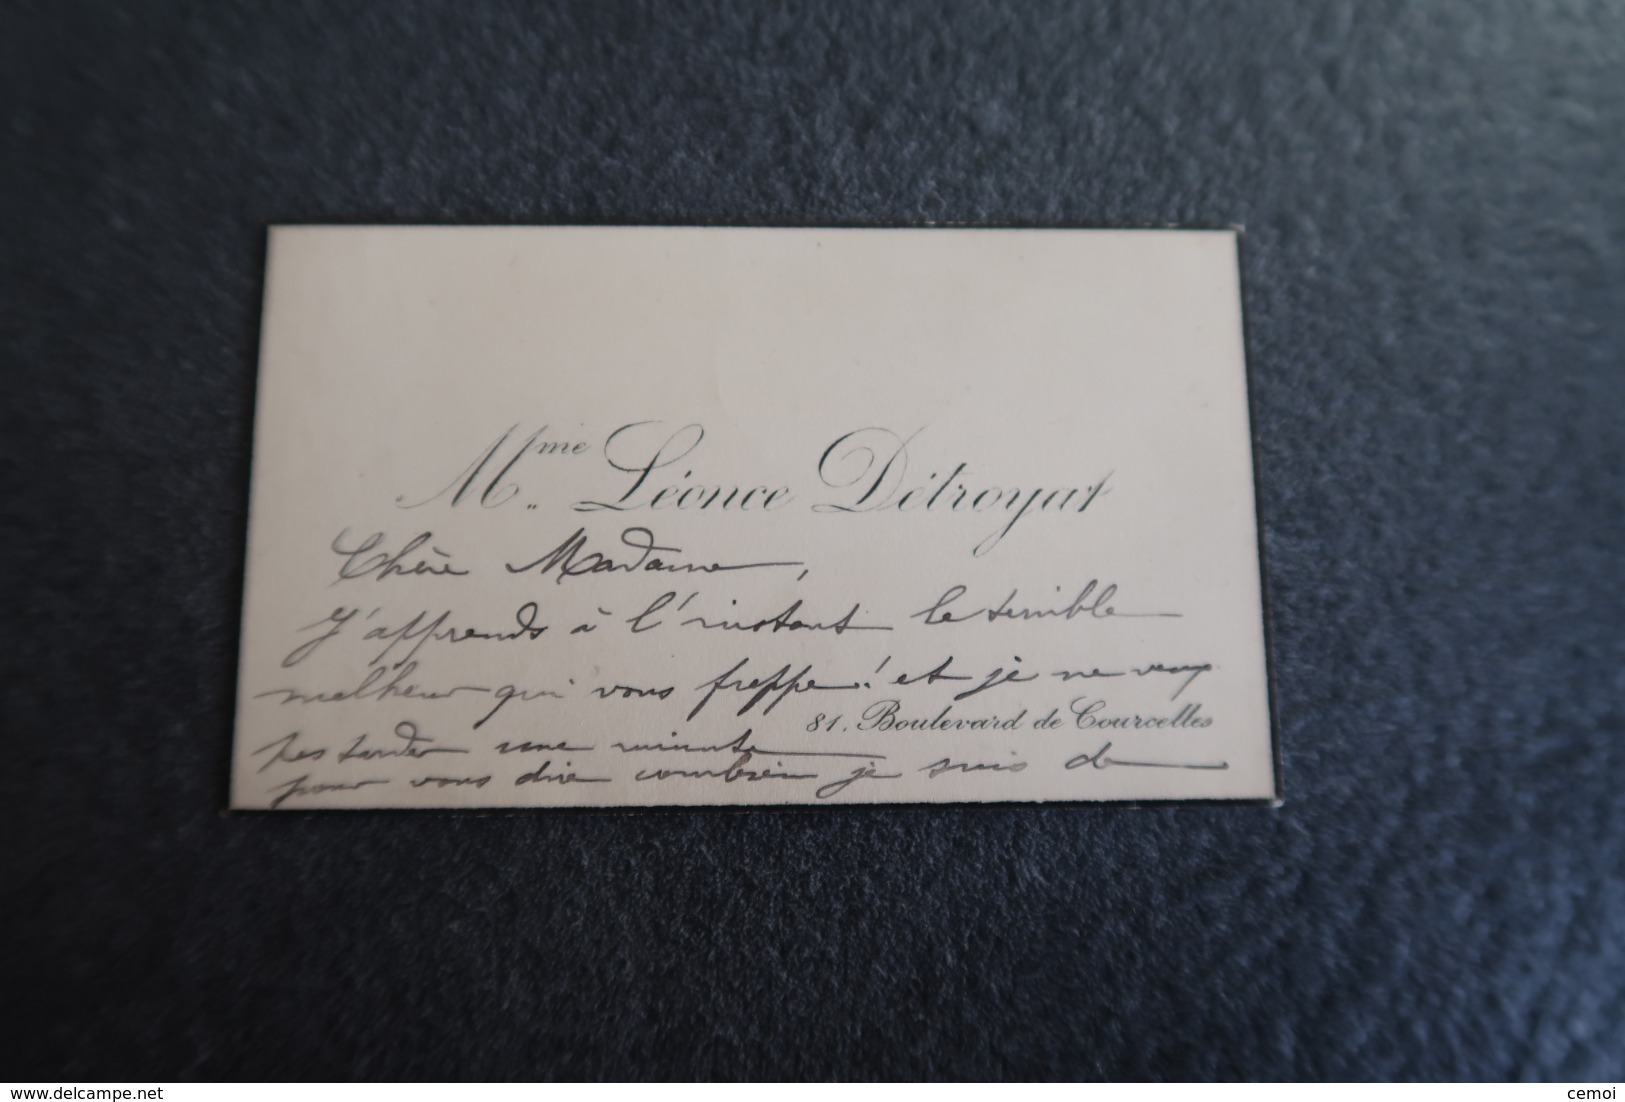 Mme Léonce Détroyat
Chère Madame,
J'apprends à l'instant le terrible
malheur qui vous frappe! et je ne veux
81, Boulevard de Courcelles
pas tarder une minute
pour vous dire combien je suis de
www.delcampe.net
cemoi